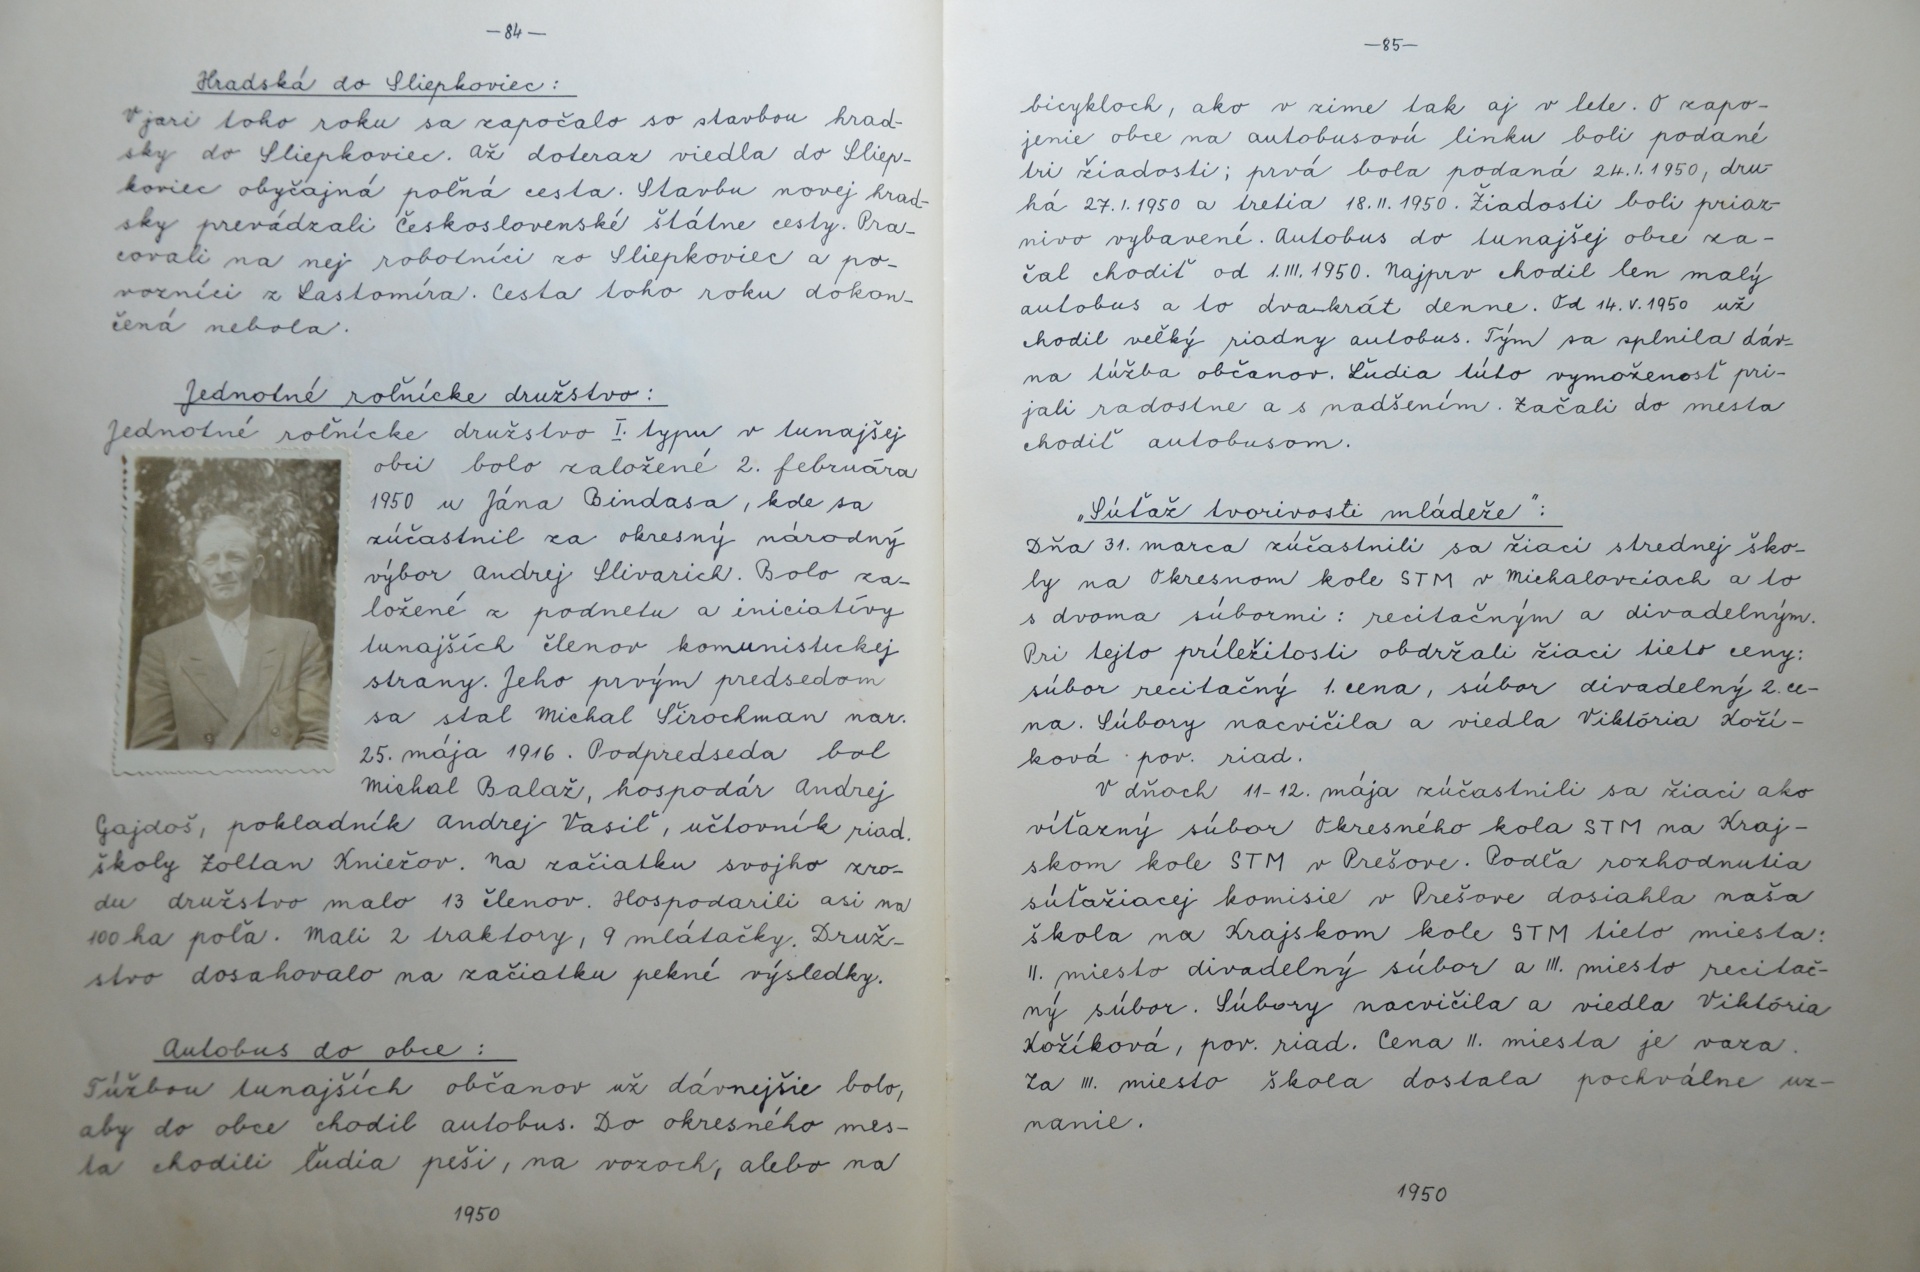 —84—
Hradská do Sliepkoviec:
V jari toho roku sa započalo so stavbou hrad-
sky do Sliepkoviec. Až doteraz viedla do Sliep-
koviec obyčajná poľná cesta. Stavbu novej hrad-
sky prevádzali Československé štátne cesty. Pra-
covali na nej robotníci zo Sliepkoviec a po-
vozníci z Lastomíra. Cesta toho roku dokon-
čená nebola.
Jednotné roľnícke družstvo:
Jednotné roľnícke družstvo I. typu v tunajšej
obci bolo založené 2. februára
1950 u Jána Bindasa, kde sa
zúčastnil za okresný národný
výbor Andrej Slivarich. Bolo za-
ložené z podnetu a iniciatívy
tunajších členov komunistickej
strany. Jeho prvým predsedom
sa stal Michal Širochman nar.
25. mája 1916. Podpredseda bol
Michal Balaž, hospodár Andrej
Gajdoš, pokladník Andrej Vasiľ, učtovník riad.
školy Zoltan Kniežov. Na začiatku svojho zro-
du družstvo malo 13 členov. Hospodarili asi na
100 ha poľa. Mali 2 traktory, 9 mlátačky. Druž-
stvo dosahovalo na začiatku pekné výsledky.
Autobus do obce:
Túžbou tunajších občanov už dávnejšie bolo,
aby do obce chodil autobus. Do okresného mes-
ta chodili ľudia peši, na vozoch, alebo na
1950
—85—
bicykloch, ako v zime tak aj v lete. O zapo-
jenie obce na autobusovú linku boli podané
tri žiadosti; prvá bola podaná 24.I.1950, dru-
há 27.I.1950 a tretia 18.II.1950. Žiadosti boli priaz-
nivo vybavené. Autobus do tunajšej obce za-
čal chodiť od 1.III.1950. Najprv chodil len malý
autobus a to dva-krát denne. Od 14.V.1950 už
chodil veľký riadny autobus. Tým sa splnila dáv-
na túžba občanov. Ľudia túto vymoženosť pri-
jali radostne a s nadšením. Začali do mesta
chodiť autobusom.
„Súťaž tvorivosti mládeže":
Dňa 31. marca zúčastnili sa žiaci strednej ško-
ly na Okresnom kole STM v Michalovciach a to
s dvoma súbormi: recitačným a divadelným.
Pri tejto príležitosti obdržali žiaci tieto ceny:
súbor recitačný 1. cena, súbor divadelný 2. ce-
na. Súbory nacvičila a viedla Viktória Koží-
ková pov. riad.
V dňoch 11-12. mája zúčastnili sa žiaci ako
víťazný súbor Okresného kola STM na Kraj-
skom kole STM v Prešove. Podľa rozhodnutia
súťažiacej komisie v Prešove dosiahla naša
škola na Krajskom kole STM tieto miesta:
II. miesto divadelný súbor a III. miesto recitač-
ný súbor. Súbory nacvičila a viedla Viktória
Kožíková, pov. riad. Cena II. miesta je vaza.
Za III. miesto škola dostala pochválne uz-
nanie.
1950